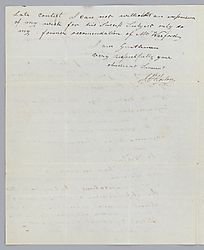 Late contest I can not withold an expression
of my wish for his Success Subject only to
my former recommendation of Mr
I am Gentlemen
very respectfully your
obedient Servant